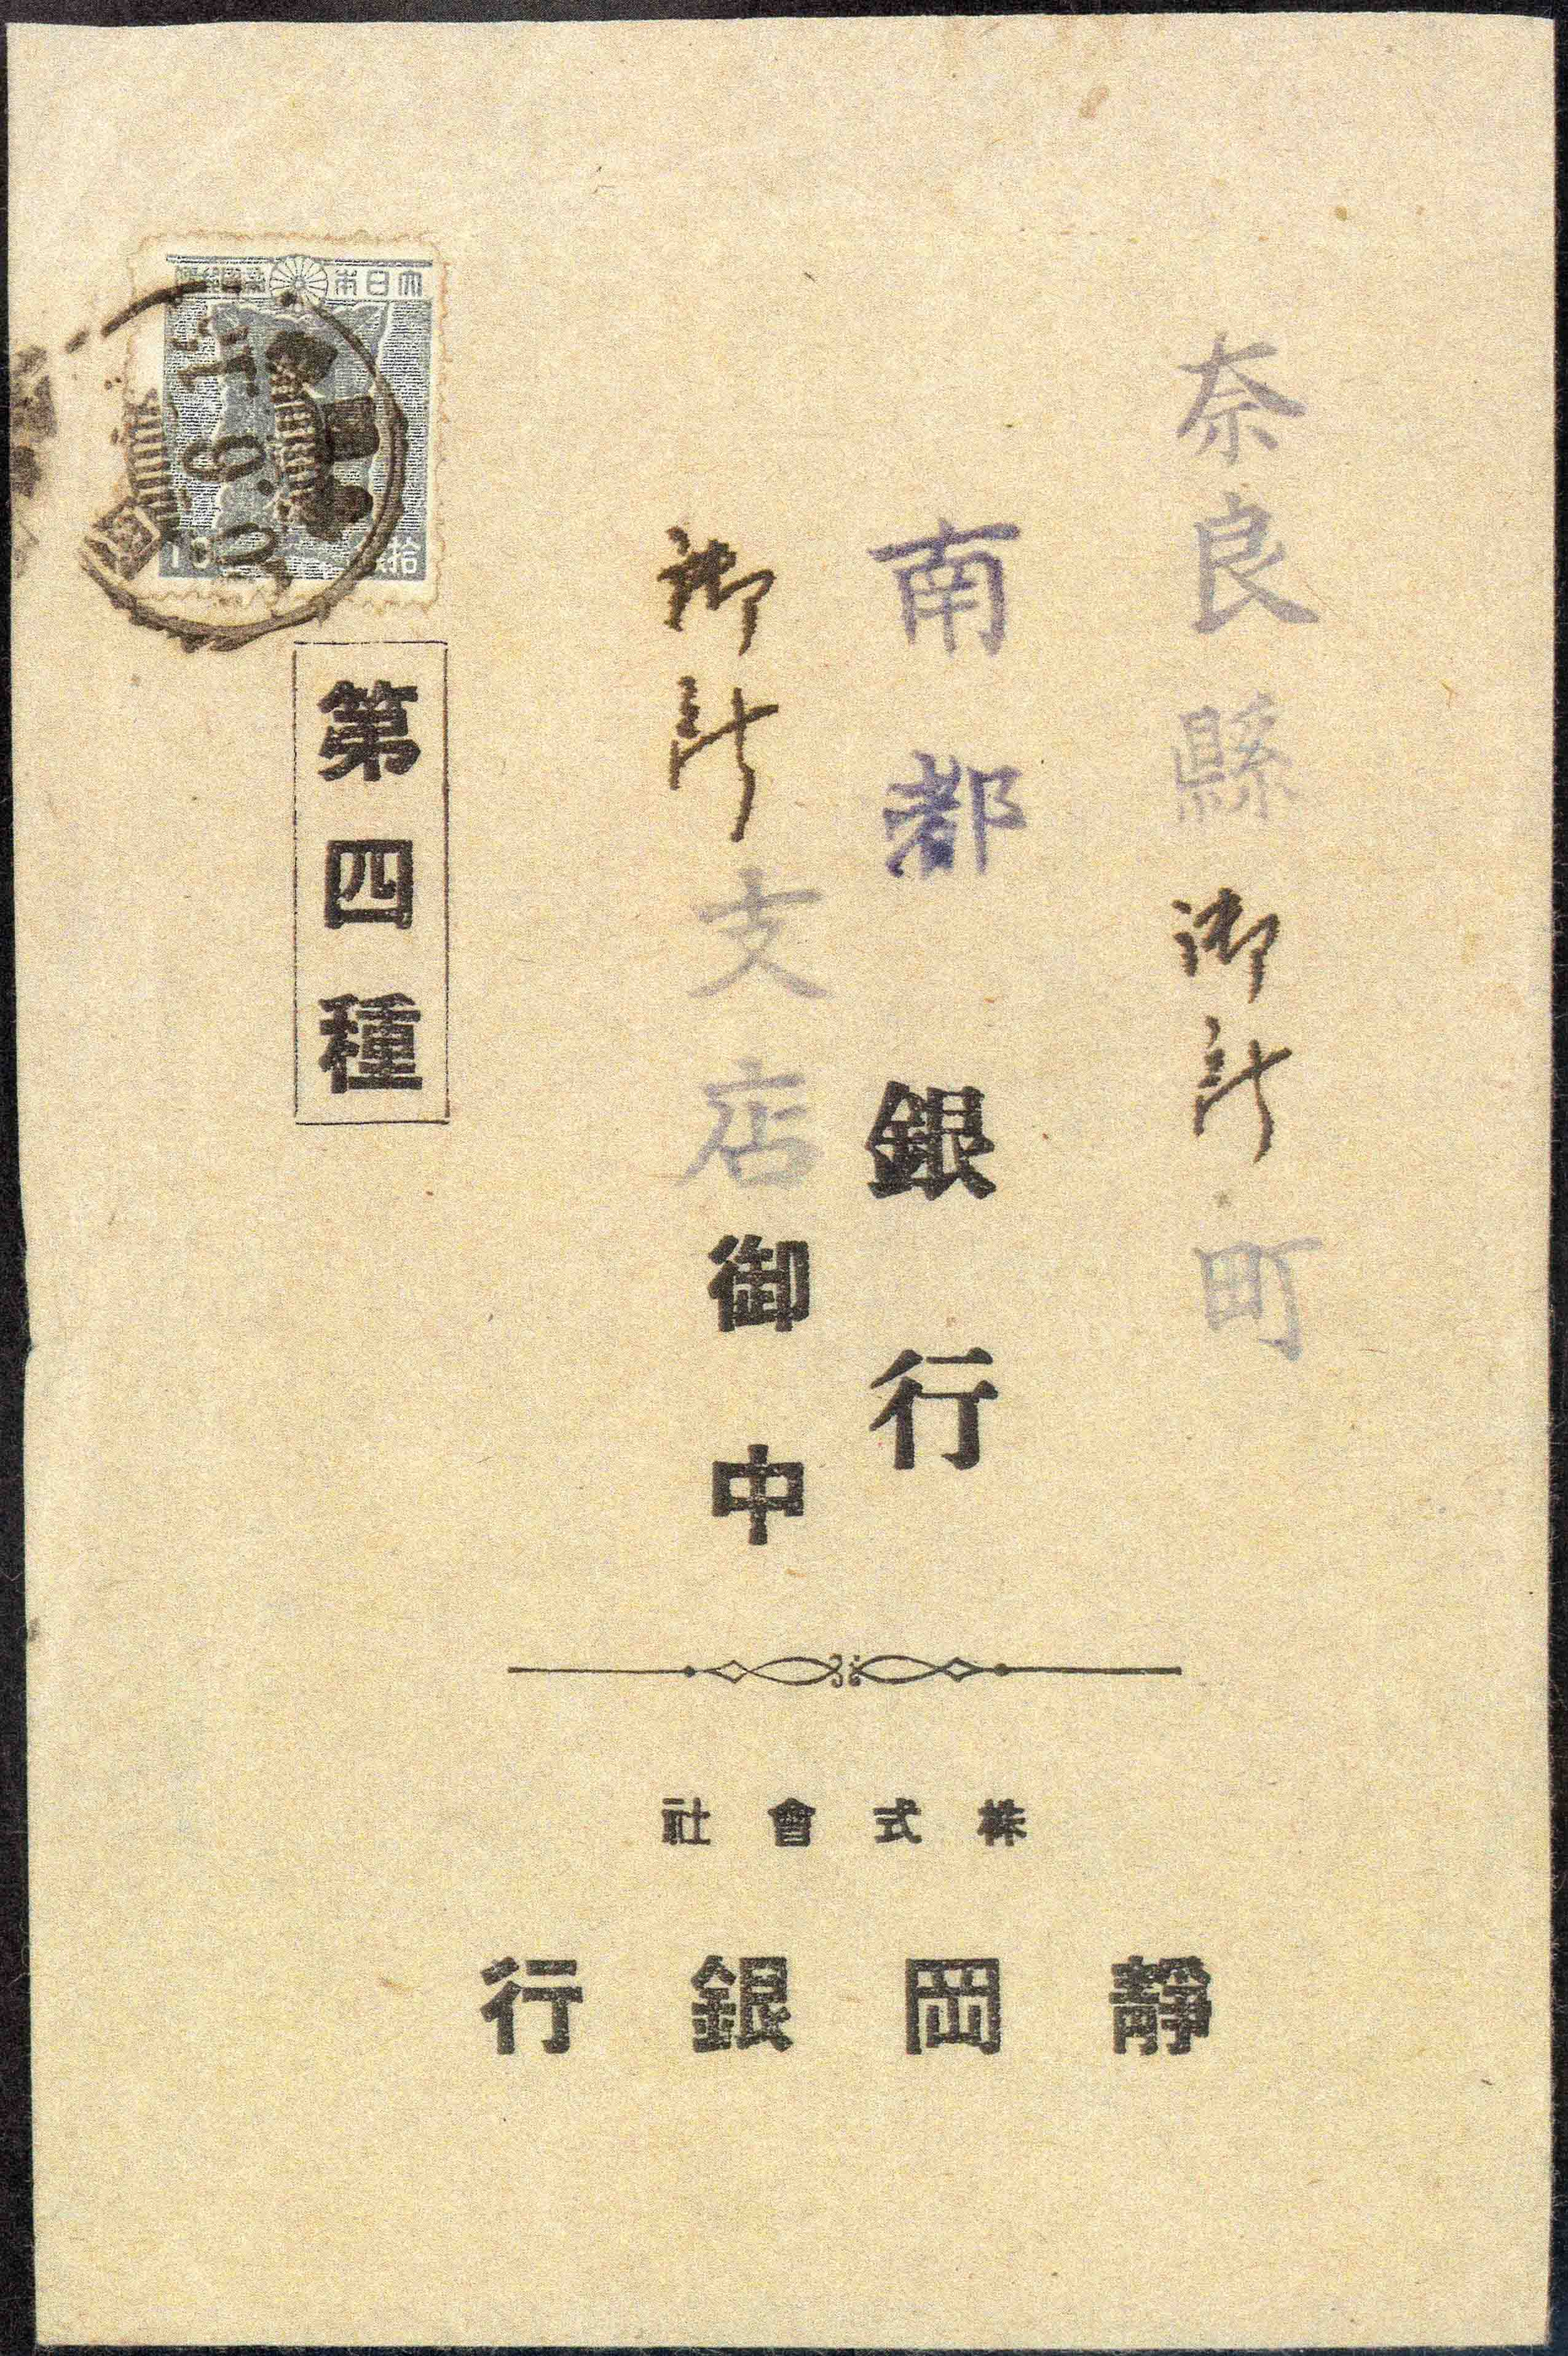 奈良縣御所町
南都銀行
御所支店御中
第四種
大日本帝國郵便
10
拾銭
15.9.20
株式會社
靜岡銀行